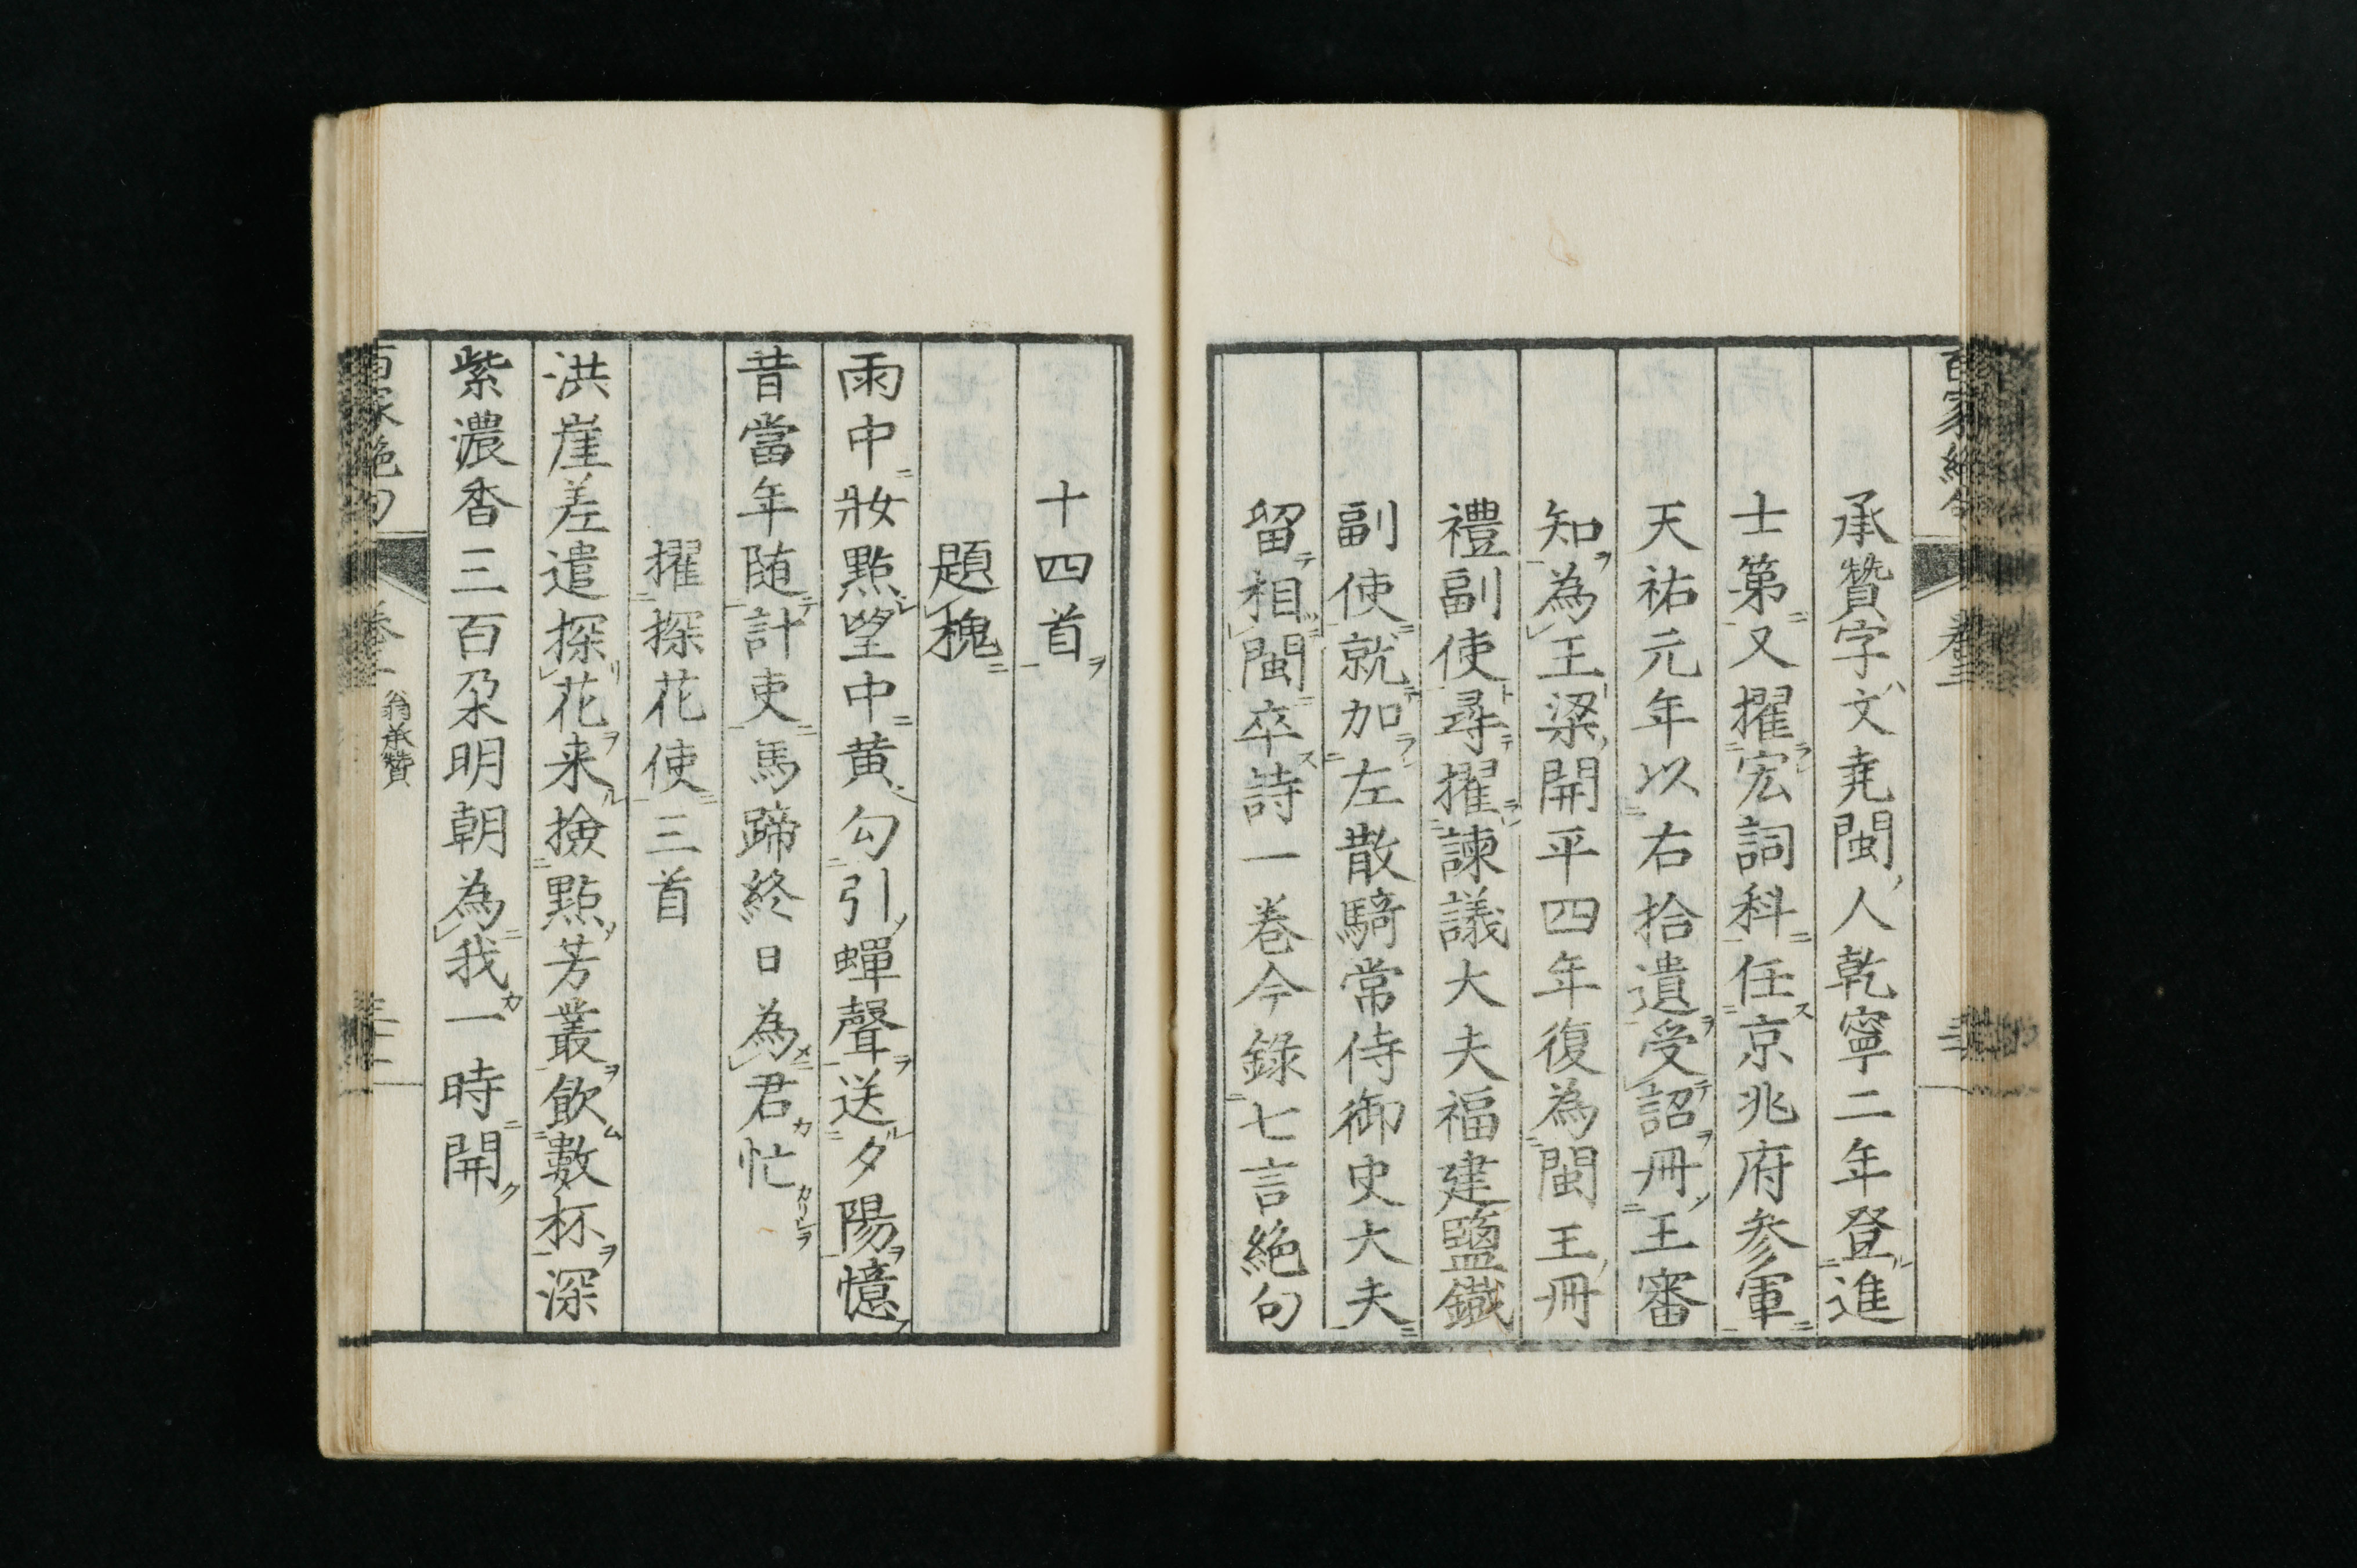 承贊字文堯閩人乾寧二年登進
士第又擢宏詞科任京兆府参軍
天祐元年以右拾遺受詔冊王審
知為王梁開平四年復為閩王冊
禮副使尋擢諫議大夫福建鹽鐵
副使就加左散騎常侍御史大夫
留相閩卒詩一卷今錄七言絕句
十四首
題槐
雨中妝點望中黄勾引蟬聲送夕陽憶
昔當年随計吏馬蹄終日為君忙
擢探花使三首
洪崖差遣探花来撿點芳叢飲數杯深
紫濃香三百朶明朝為我一時開
百家絶句
翁承贊